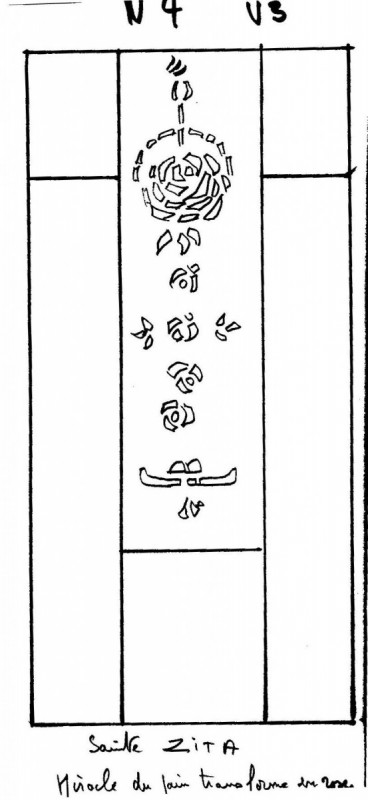 N 4 V3
Sainte ZiTA
Miracle du pain transforme en rose.